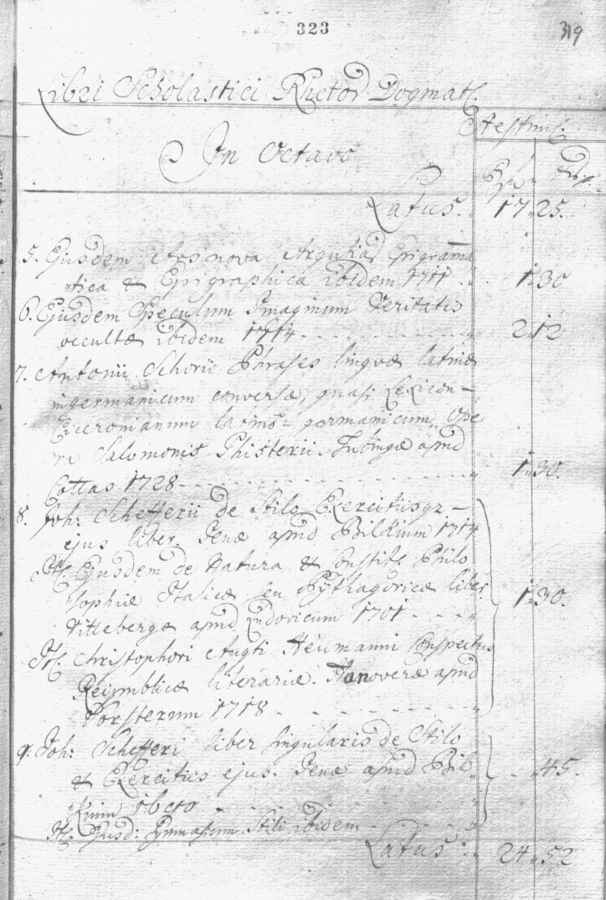 323
319
Libri Scholastici Rhetor Dogmat:
Aestim:
In Octavo
Latus. 17 25.
5. Ejusdem Ars nova Argutiar Epigramma
tica & Epigraphica ibidem 1711 1. 30
6. Ejusdem Speculum Imaginum Veritatis
occultæ ibidem 1714 2. 12
7. Antonii Schorii Phrases linguæ latinæ
in germanicum conversæ, quasi Lexicon
Ciceronianum latino-germanicum, Ope
ra Salomonis Phisterii. Tubingæ apud
Cottas 1728 1. 30.
8. Joh: Schefferii de Stilo Exercitiisq-
ejus liber. Jenæ apud Bildium 1714
It. Ejusdem de Natura & Constit: Philo
sophiæ Italicæ seu Pythagoricæ liber
Vitteberge apud Ludovicum 1701 1. 30.
It. Christophori Augti Heumanni Conspectus
Reipublicæ literariæ. Hanoveræ apud
Forsterum 1718
9. Joh: Schefferi liber singularis de Stilo
& Exercitiis ejus. Jenæ apud Biel 45.
It. Ejusd: Gymnasium Stili ibidem
Latus 24. 52